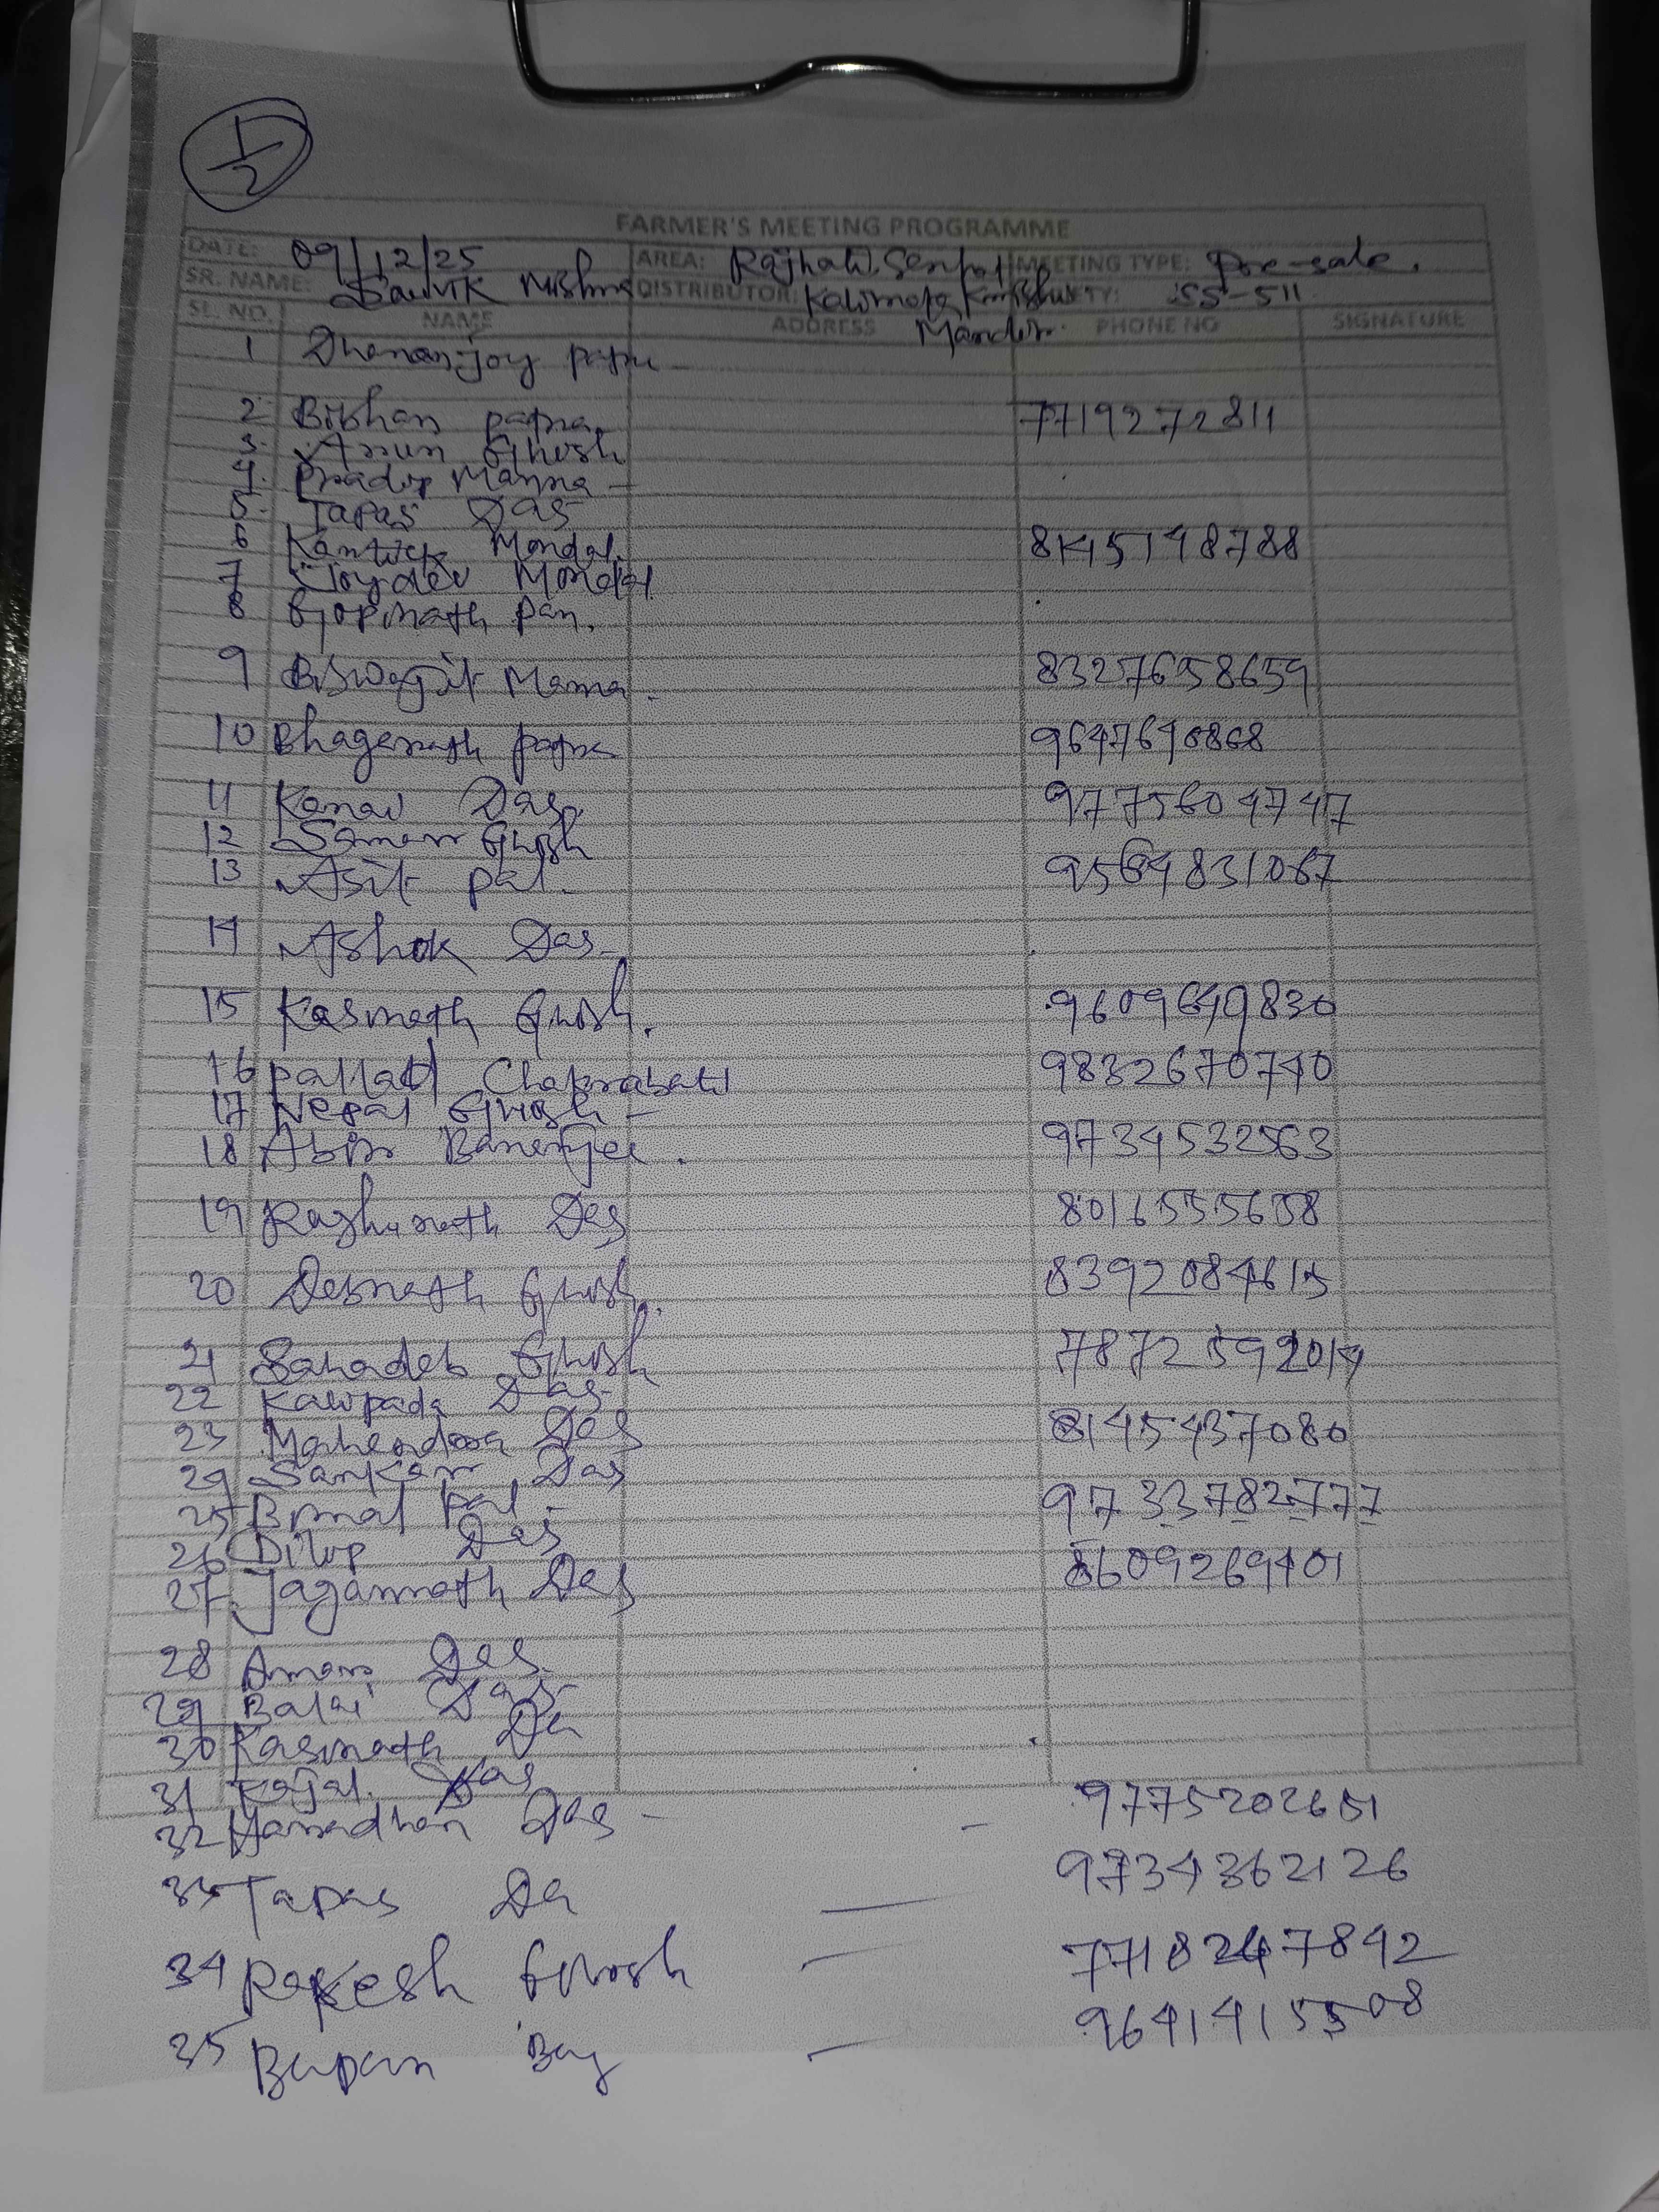 1/2
FARMER'S MEETING PROGRAMME
DATE: 09/12/25 AREA: Rajhati, Senhat MEETING TYPE: Pre-sale.
SR. NAME: Souvik Mishra DISTRIBUTOR: Kalimata Krishi Mandir VARIETY: SS-511
SL. NO. NAME ADDRESS PHONE NO SIGNATURE
1 Dhananjoy
2 Bidhan patra 7719272811
3. Arun Ghosh
4. Pradip Manna -
5. Tapas Das
6 Kartick Mondal. 8145148788
7 Joydev Mondal
8 Gopinath Pan.
9 Biswajit Manna. 8327658659
10 Bhagenath patra 9647640868
11 Kanai Das. 9775604747
12 Samar Ghosh
13 Asit pal. 9564831067
14 Ashok Das-
15 Kasinath Ghosh. 9609649830
16 Pallab Chakrabati 9832670740
17 Nepal Ghosh -
18 Abir Banerjee. 9734532563
19 Raghunath Das 8016555658
20 Debnath Ghosh. 8392084615
21 Sahadeb Ghosh
22 Kalipada Das-
23 Mahendra Das 8145437080
24 Sankar Das
25 Bimal pal - 9733782777
26 Dilip Das
27. Jagannath Das 8609269401
28 Amar Das
29 Balai Das-
30 Kasinath De
31 Kajal. Das 9775202651
32 Haradhan Das -
33 Tapas De 9734362126
34 Rakesh Ghosh 7718247842
35 Bapan Bag 9641415508